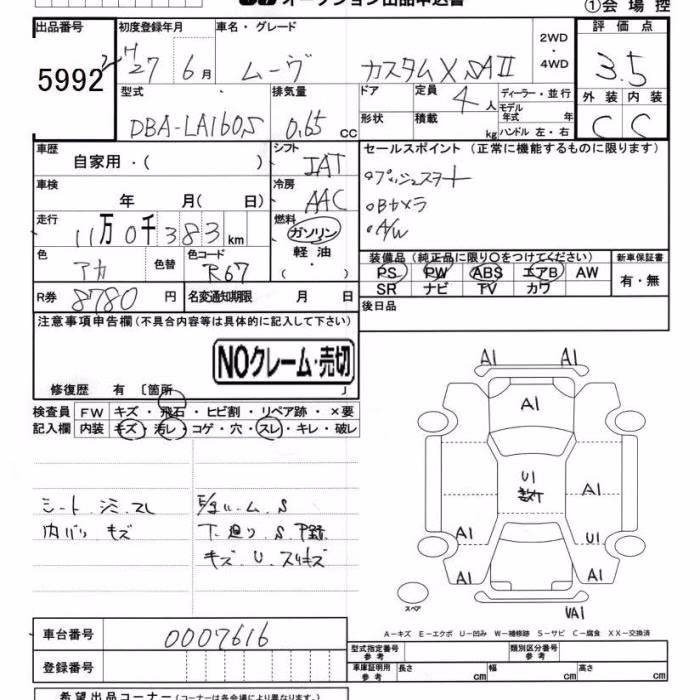 オークション出品申込書
①会場控
出品番号 初度登録年月 車名・グレード 2WD・4WD 評価点
5992 H27 6月 ムーヴ カスタムX SAII 3.5
型式 排気量 ドア 定員 4人 ディーラー・並行 外装 内装
DBA-LA160S 0.65 cc 形状 積載 kg モデル年式 年 ハンドル 左・右 C C
車歴 自家用・( ) シフト IAT セールスポイント (正常に機能するものに限ります)
車検 年 月( 日) 冷房 AAC プッシュスタート
Bカメラ
A/W
走行 11万0千383km 燃料 ガソリン 軽油・( ・ )
色 アカ 色替 色コード R67 装備品 (純正品に限り○をつけてください) 新車保証書
PS PW ABS エアB AW 有・無
SR ナビ TV カワ
R券 8780円 名変通知期限 月 日 後日品
注意事項申告欄 (不具合内容等は具体的に記入して下さい)
NOクレーム・売切
修復歴 有 〔箇所 〕
検査員 FW キズ・飛石・ヒビ割・リペア跡・×要
記入欄 内装 キズ・汚レ・コゲ・穴・スレ・キレ・破レ
シート シミ スレ
内バリ キズ
下廻り S
キズ U スリキズ
A1 A1
A1
U1
A1
A1 U1
A1 A1
VA1
スペア
A-キズ E-エクボ U-凹み W-補修跡 S-サビ C-腐食 XX-交換済
車台番号 0007616
型式指定番号 参考 類別区分番号 参考
登録番号 車庫証明用 参考 長さ cm 幅 cm 高さ cm
希望出品コーナー (コーナーは各会場により異なります。)